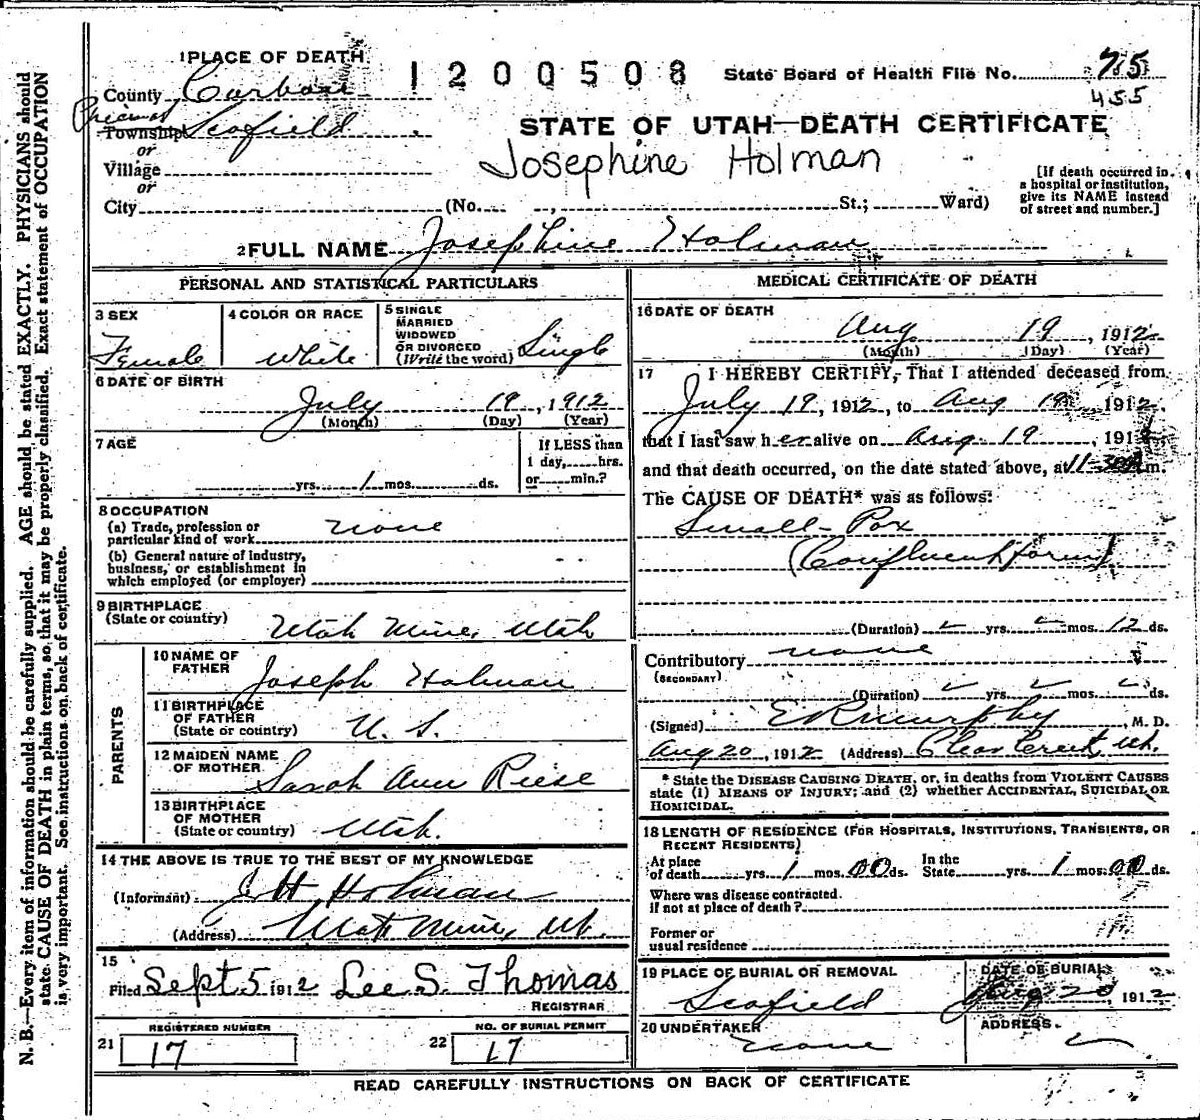 N. B.—Every item of information should be carefully supplied. AGE should be stated EXACTLY. PHYSICIANS should
state CAUSE OF DEATH in plain terms, so that it may be properly classified. Exact statement of OCCUPATION
is very important. See instructions on back of certificate.
1 PLACE OF DEATH
1200508
State Board of Health File No. 75
455
County Carbon
Precinct
Township Scofield
or
Village
or
City (No. , St.; Ward)
STATE OF UTAH—DEATH CERTIFICATE
Josephine Holman
[If death occurred in
a hospital or institution,
give its NAME instead
of street and number.]
2 FULL NAME Josephine Holman
PERSONAL AND STATISTICAL PARTICULARS
3 SEX
Female
4 COLOR OR RACE
White
5 SINGLE
MARRIED
WIDOWED
OR DIVORCED
(Write the word) Single
6 DATE OF BIRTH
July 19, 1912
(Month) (Day) (Year)
7 AGE
yrs. 1 mos. ds.
If LESS than
1 day, hrs.
or min.?
8 OCCUPATION
(a) Trade, profession or
particular kind of work none
(b) General nature of industry,
business, or establishment in
which employed (or employer)
9 BIRTHPLACE
(State or country)
Utah Mine, Utah
PARENTS
10 NAME OF
FATHER
Joseph Holman
11 BIRTHPLACE
OF FATHER
(State or country) U. S.
12 MAIDEN NAME
OF MOTHER
Sarah Ann Riese
13 BIRTHPLACE
OF MOTHER
(State or country) Utah.
14 THE ABOVE IS TRUE TO THE BEST OF MY KNOWLEDGE
(Informant) J H Holman
(Address) Utah Mine, Ut.
15
Filed Sept 5 1912 Lee S. Thomas
REGISTRAR
REGISTERED NUMBER
21 17
NO. OF BURIAL PERMIT
22 17
MEDICAL CERTIFICATE OF DEATH
16 DATE OF DEATH
Aug 19, 1912
(Month) (Day) (Year)
17 I HEREBY CERTIFY, That I attended deceased from
July 19, 1912, to Aug 19, 1912,
that I last saw her alive on Aug 19, 1912
and that death occurred, on the date stated above, at 11-30 m.
The CAUSE OF DEATH* was as follows:
Small-Pox
(Confluent form)
(Duration) yrs. mos. 12 ds.
Contributory none
(SECONDARY)
(Duration) yrs. mos. ds.
(Signed) E R Murphy, M. D.
Aug 20, 1912 (Address) Clear Creek, Ut.
* State the DISEASE CAUSING DEATH, or, in deaths from VIOLENT CAUSES
state (1) MEANS OF INJURY; and (2) whether ACCIDENTAL, SUICIDAL OR
HOMICIDAL.
18 LENGTH OF RESIDENCE (FOR HOSPITALS, INSTITUTIONS, TRANSIENTS, OR
RECENT RESIDENTS)
At place of death yrs. 1 mos. 00 ds. In the State yrs. 1 mos. 00 ds.
Where was disease contracted.
if not at place of death?
Former or
usual residence
19 PLACE OF BURIAL OR REMOVAL
Scofield
DATE OF BURIAL
Aug 20, 1912
20 UNDERTAKER
none
ADDRESS
READ CAREFULLY INSTRUCTIONS ON BACK OF CERTIFICATE